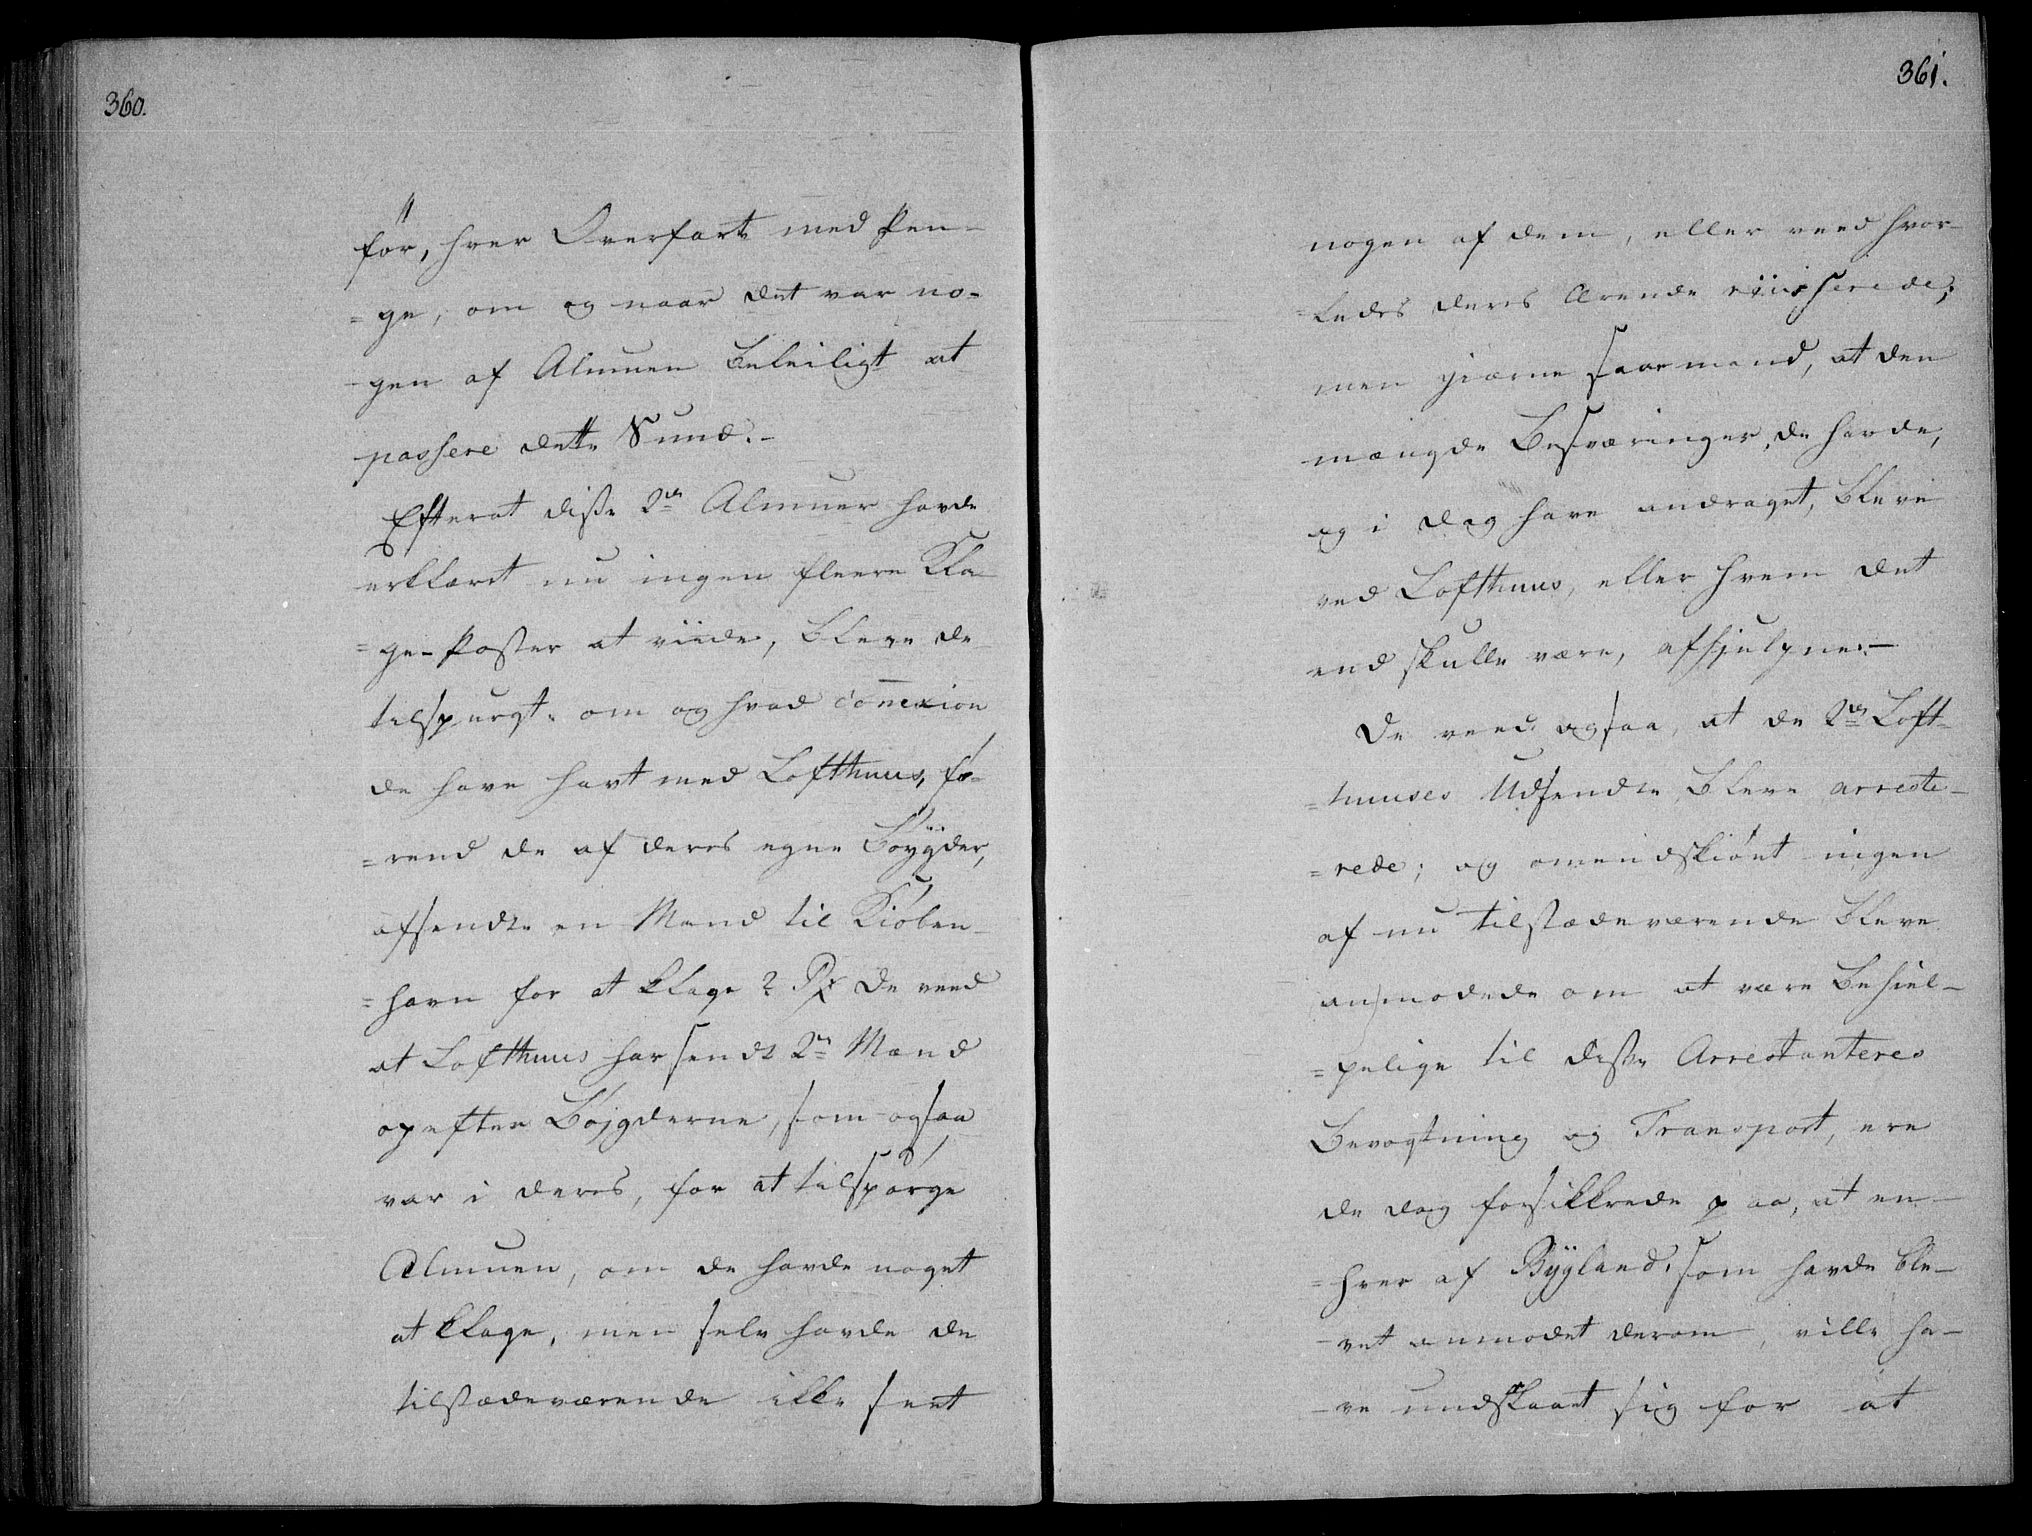 360.
før, hver Overfart med Pen-
=ge, om og naar det var no-
-gen af Almuen beleiligt at
passere dette Sund.-
Efterat disse 2de Almuer havde
erklæret nu ingen fleere Kla-
=ge-Poster at viide, bleve de
tilspurgt: om og hvad Connexion
de have havt med Lofthuus, fø-
=rend de af deres egne Bøygder,
afsendte en Mand til Kiøben-
=havn for at klage? Rx de veed
at Lofthuus har sendt 2de Mænd
op efter Bøjgderne, som ogsaa
var i deres, for at tilspørge
Almuen, om de havde noget
at klage, men selv havde de
tilstædeværende ikke seet
361.
nogen af dem, eller veed hvor-
=ledes deres Ærende
men giærne saae mand, at den
mængde Besværinger, de havde,
og i Dag have andraget, bleve
ved Lofthuus, eller hvem det
end skulle være, afhjulpne.-
De veed ogsaa, at de 2de Loft-
=huuses Udsendte bleve arreste-
=rede; og omendskiønt ingen
af nu tilstædeværende bleve
anmodede om at være behiel-
=pelige til disse Arrestanteres
Bevogtning og Transport, ere
de dog forsikkrede paa, at en-
=hver af Bÿgland, som havde ble-
-vet anmodet derom, ville ha-
-ve undslaaet sig for at